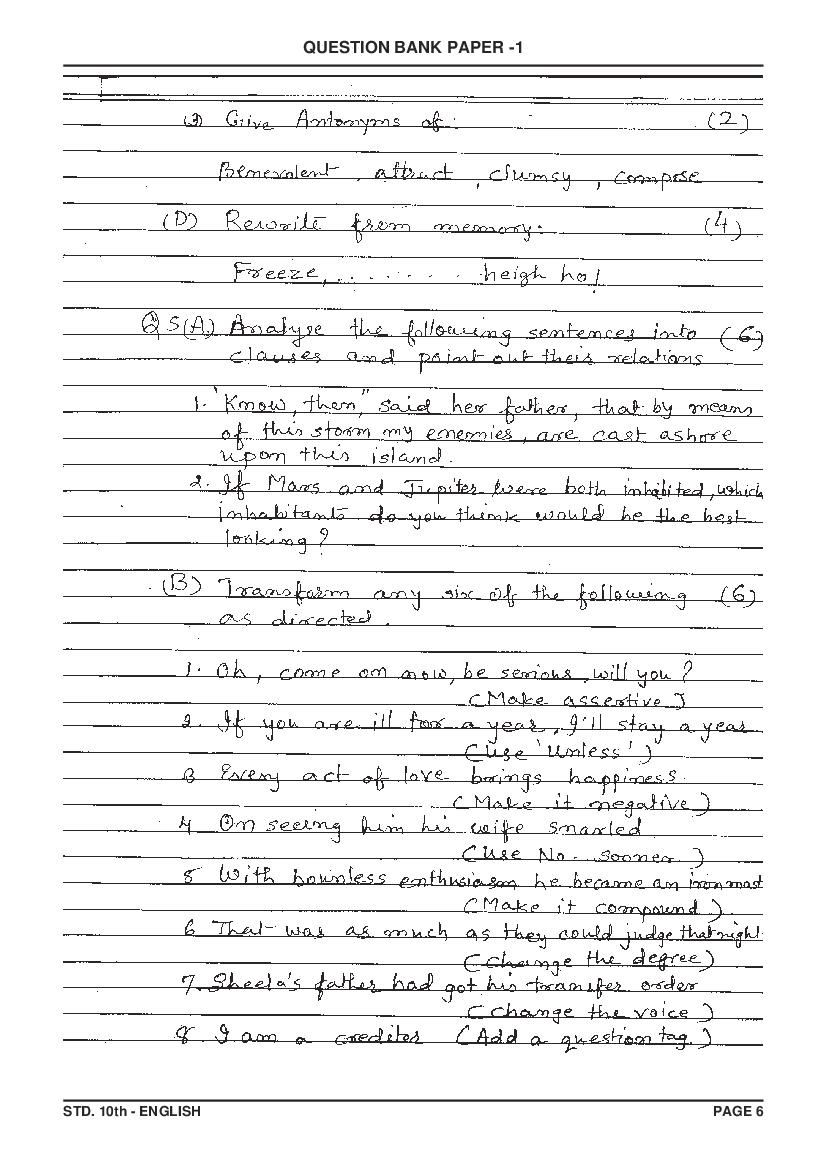 QUESTION BANK PAPER -1
(3) Give Antonyms of: (2)
Benevolent, attract, clumsy, compose
(D) Rewrite from memory: (4)
Freeze, . . . . . . . heigh ho!
Q 5(A) Analyse the following sentences into (6)
clauses and point out their relations
1. "Know, then," said her father, that by means
of this storm my enemies, are cast ashore
upon this island.
2. If Mars and Jupiter were both inhabited, which
inhabitants do you think would be the best
looking?
(B) Transform any six of the following (6)
as directed.
1. Oh, come on now, be serious, will you?
(Make assertive)
2. If you are ill for a year, I'll stay a year
(Use 'Unless')
3 Every act of love brings happiness.
(Make it negative)
4 On seeing him his wife snarled
(Use No. sooner)
5 With bounless enthusiasm he became an iron mast
(Make it compound)
6 That was as much as they could judge that night.
(Change the degree)
7. Sheela's father had got his transfer order
(change the voice)
8. I am a creditor (Add a question tag.)
STD. 10th - ENGLISH PAGE 6